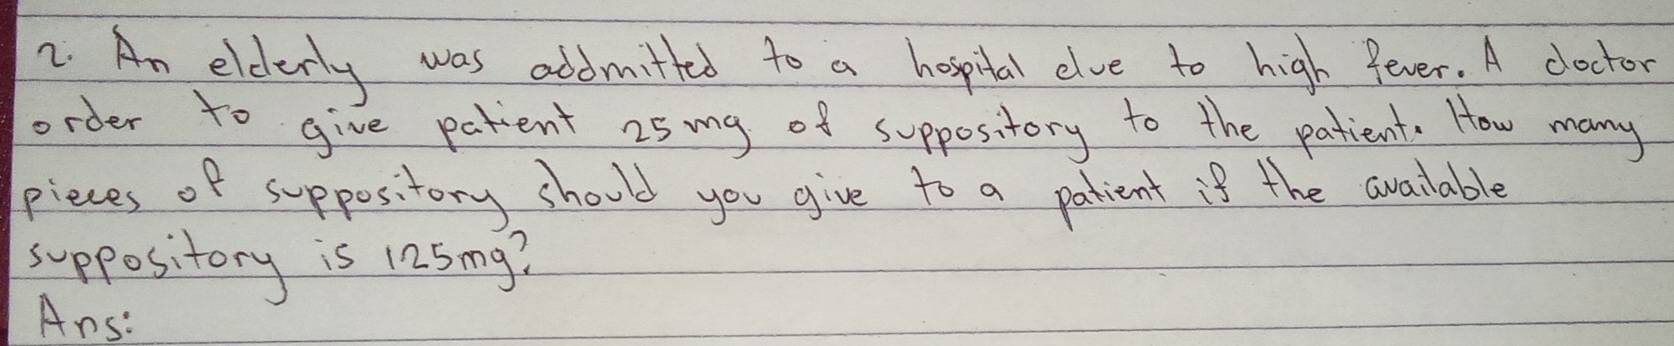 2. An elderly was addmitted to a hospital due to high fever. A doctor
order to give patient 25 mg of suppository to the patient. How many
pieces of suppository should you give to a patient if the available
suppository is 125mg?
Ans: